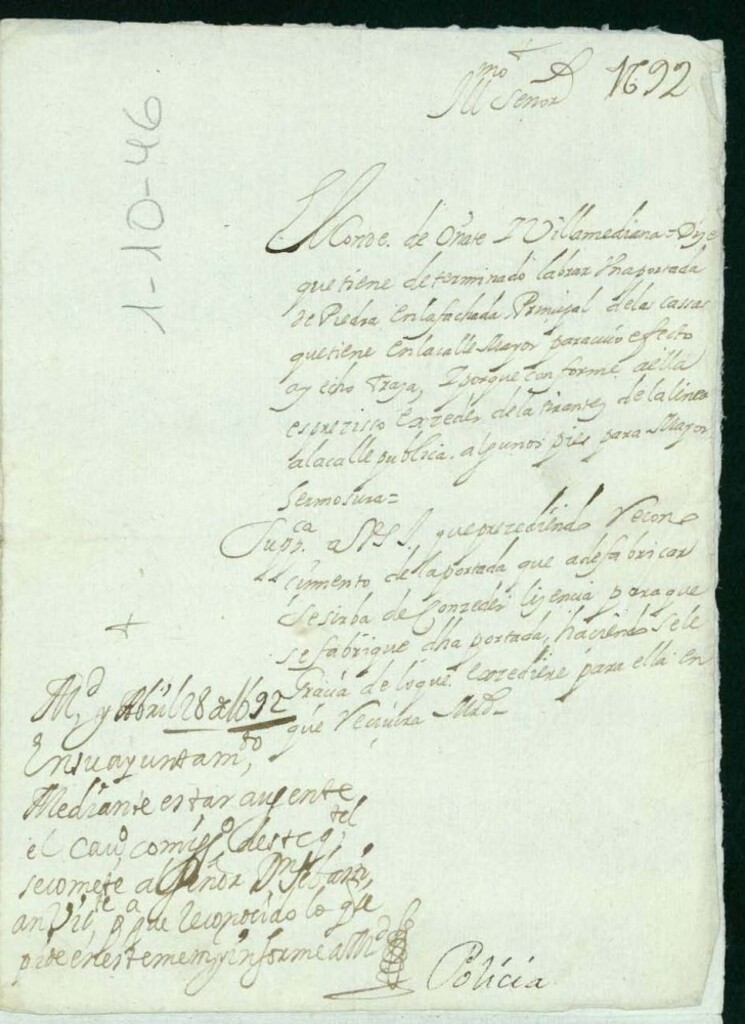 1692
Illmo Señor
1-10-46
El Conde. de Oñate I Villamediana = Dize
que tiene determinado labrar Vna portada
de Piedra en la fachada Prinsipal de las cassas
que tiene en la calle Mayor para cuio efecto
ay echo Traza, I porque conforme a ella
es prezisso exzeder de la tirantez de la linea
a la calle publica. algunos pies para Mayor
hermosura =
Suppca a VSI, que prezediendo Recono
cimiento de la portada que a de fabricar
se sirba de conzeder lizencia para que
se fabrique dha portada, haciendosele
Gracia de lo que exzediere para ella en
que Reciuira Mrd
Md y Abril 28 de 1692
En su ayuntamto,
Mediante estar ausente
el Cauo comisso deste qtel
se comete al Señor Dn Sebasti
an Vizte pa que reconocido lo que
pide en este mem y informe a Md
Policia